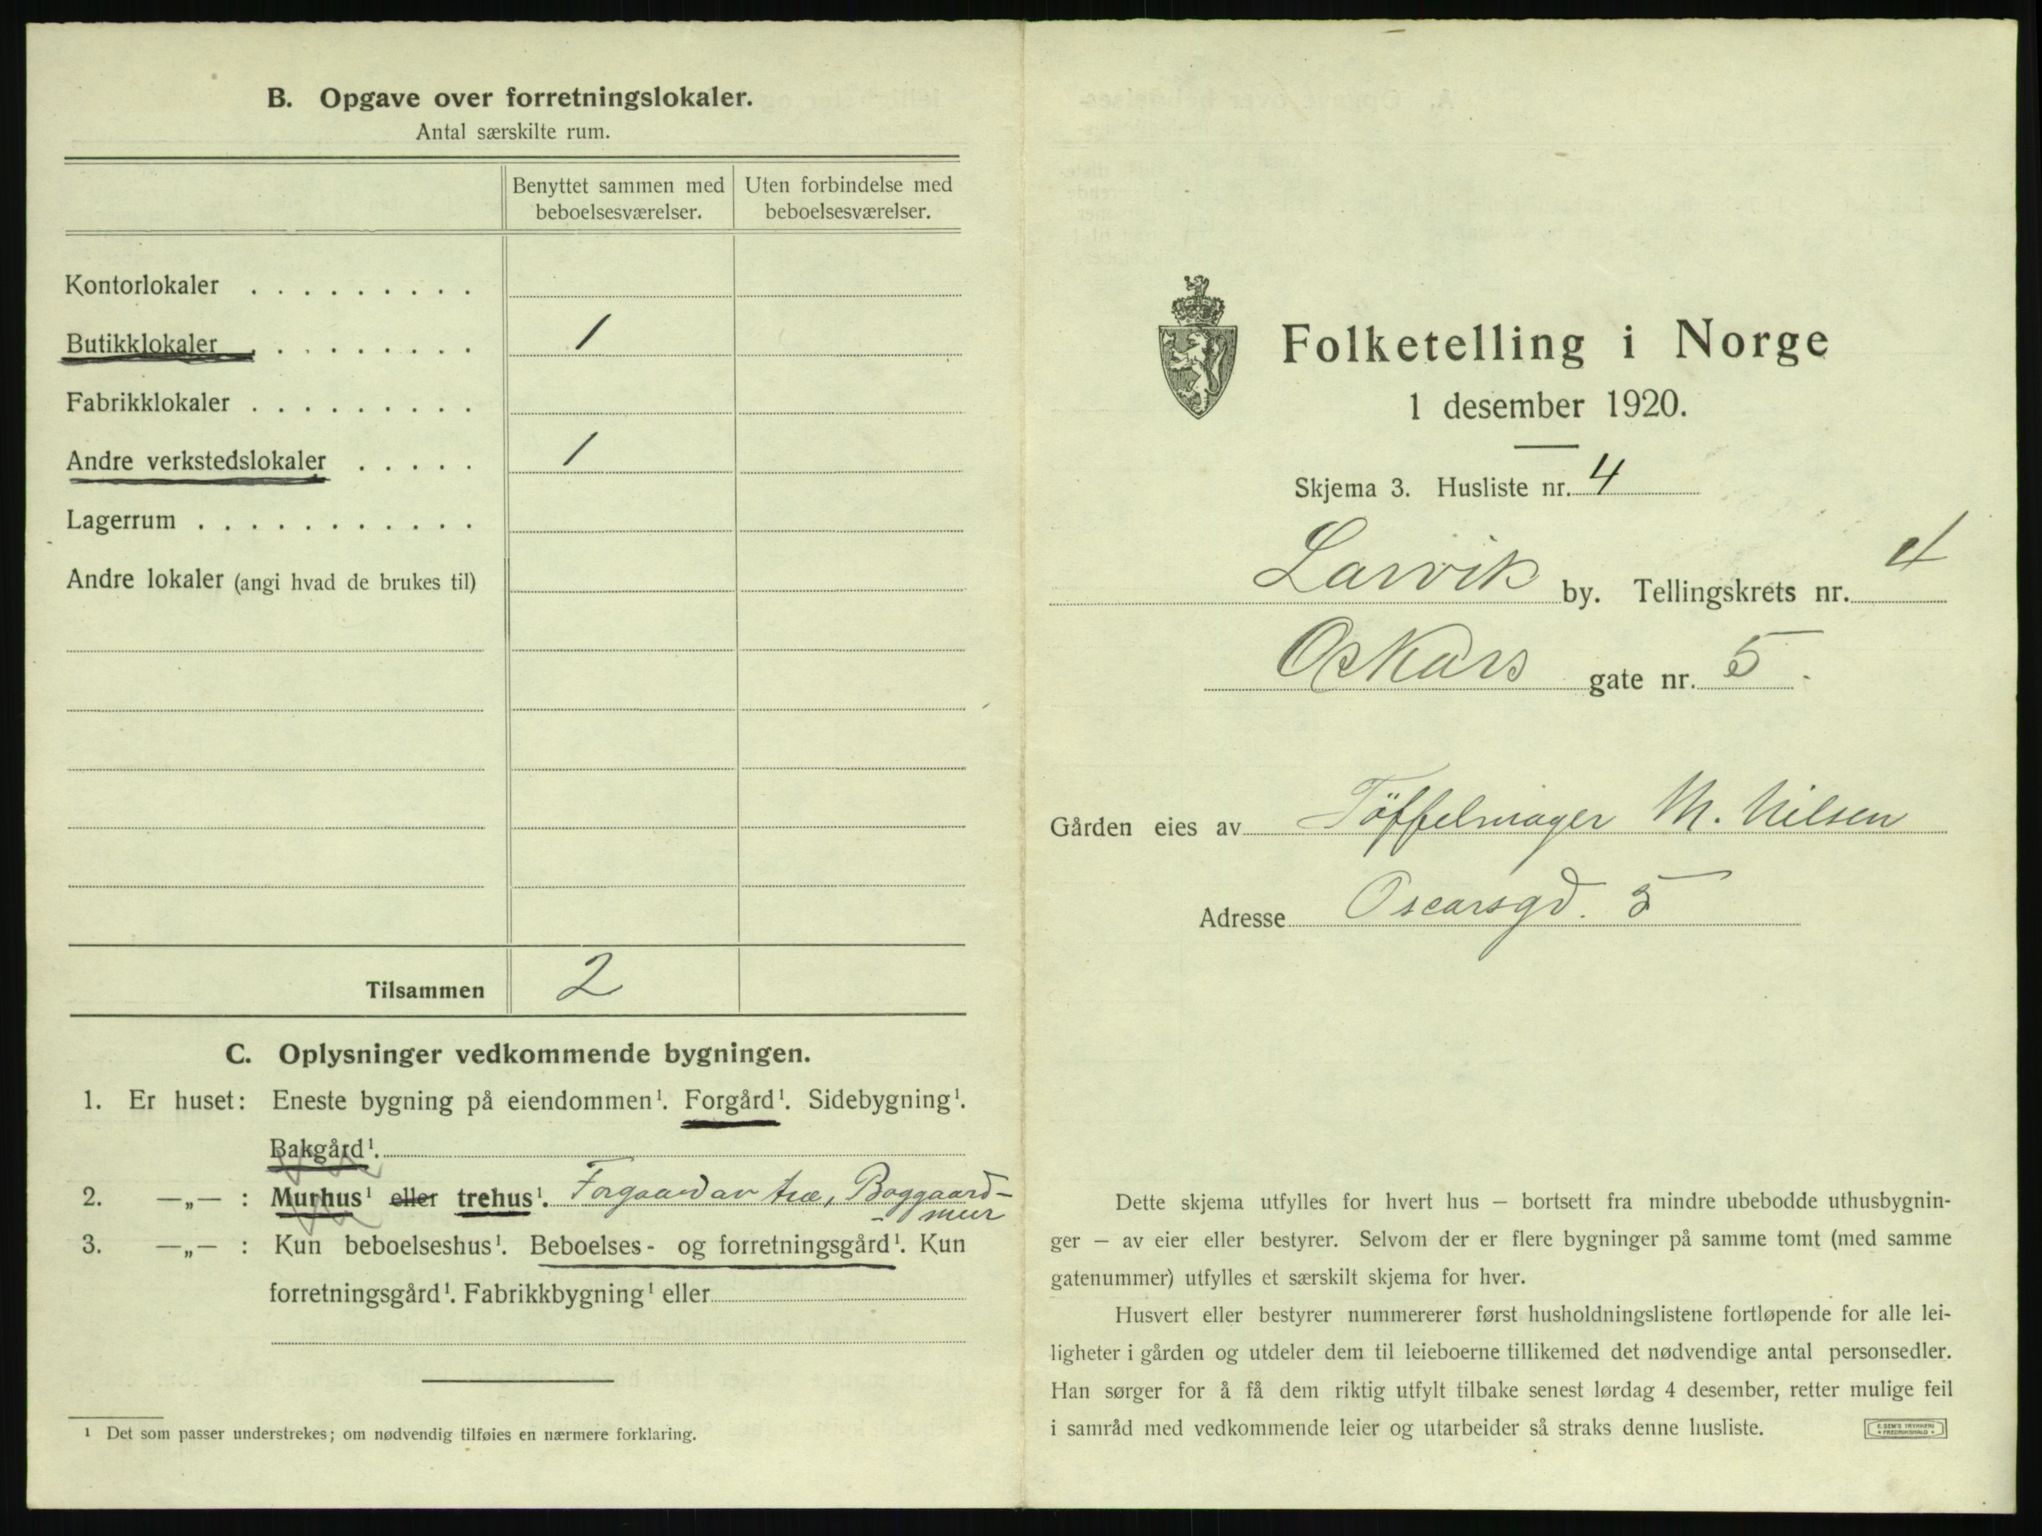 B. Opgave over forretningslokaler.
Antal særskilte rum.
Benyttet sammen med beboelsesværelser.
Uten forbindelse med beboelsesværelser.
Kontorlokaler . . . . . . . . .
Butikklokaler . . . . . . . . . 1
Fabrikklokaler . . . . . . . . .
Andre verkstedslokaler . . . . . 1
Lagerrum . . . . . . . . . . .
Andre lokaler (angi hvad de brukes til)
Tilsammen 2
C. Oplysninger vedkommende bygningen.
1. Er huset: Eneste bygning på eiendommen¹. Forgård¹. Sidebygning¹.
Bakgård¹.
2. —„— : Murhus¹ eller trehus¹. Forgaard av træ, Baggaard-
- mur
3. —„— : Kun beboelseshus¹. Beboelses- og forretningsgård¹. Kun
forretningsgård¹. Fabrikkbygning¹ eller
¹ Det som passer understrekes; om nødvendig tilføies en nærmere forklaring.
Folketelling i Norge
1 desember 1920.
Skjema 3. Husliste nr. 4
Larvik by. Tellingskrets nr. 4
Oskars gate nr. 5.
Gården eies av Töffelmager M. Nilsen
Adresse Oscarsgd. 5
Dette skjema utfylles for hvert hus — bortsett fra mindre ubebodde uthusbygnin-
ger — av eier eller bestyrer. Selvom der er flere bygninger på samme tomt (med samme
gatenummer) utfylles et særskilt skjema for hver.
Husvert eller bestyrer nummererer først husholdningslistene fortløpende for alle lei-
ligheter i gården og utdeler dem til leieboerne tillikemed det nødvendige antal personsedler.
Han sørger for å få dem riktig utfylt tilbake senest lørdag 4 desember, retter mulige feil
i samråd med vedkommende leier og utarbeider så straks denne husliste.
E. SEM'S TRYKKERI
• FREDRIKSHALD •